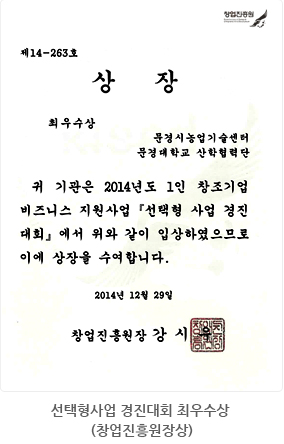 창업진흥원
제14-263호
상 장
최우수상
문경시농업기술센터
문경대학교 산학협력단
귀 기관은 2014년도 1인 창조기업
비즈니스 지원사업 『선택형 사업 경진
대회』에서 위와 같이 입상하였으므로
이에 상장을 수여합니다.
2014년 12월 29일
창업진흥원장 강 시 우
선택형사업 경진대회 최우수상
(창업진흥원장상)